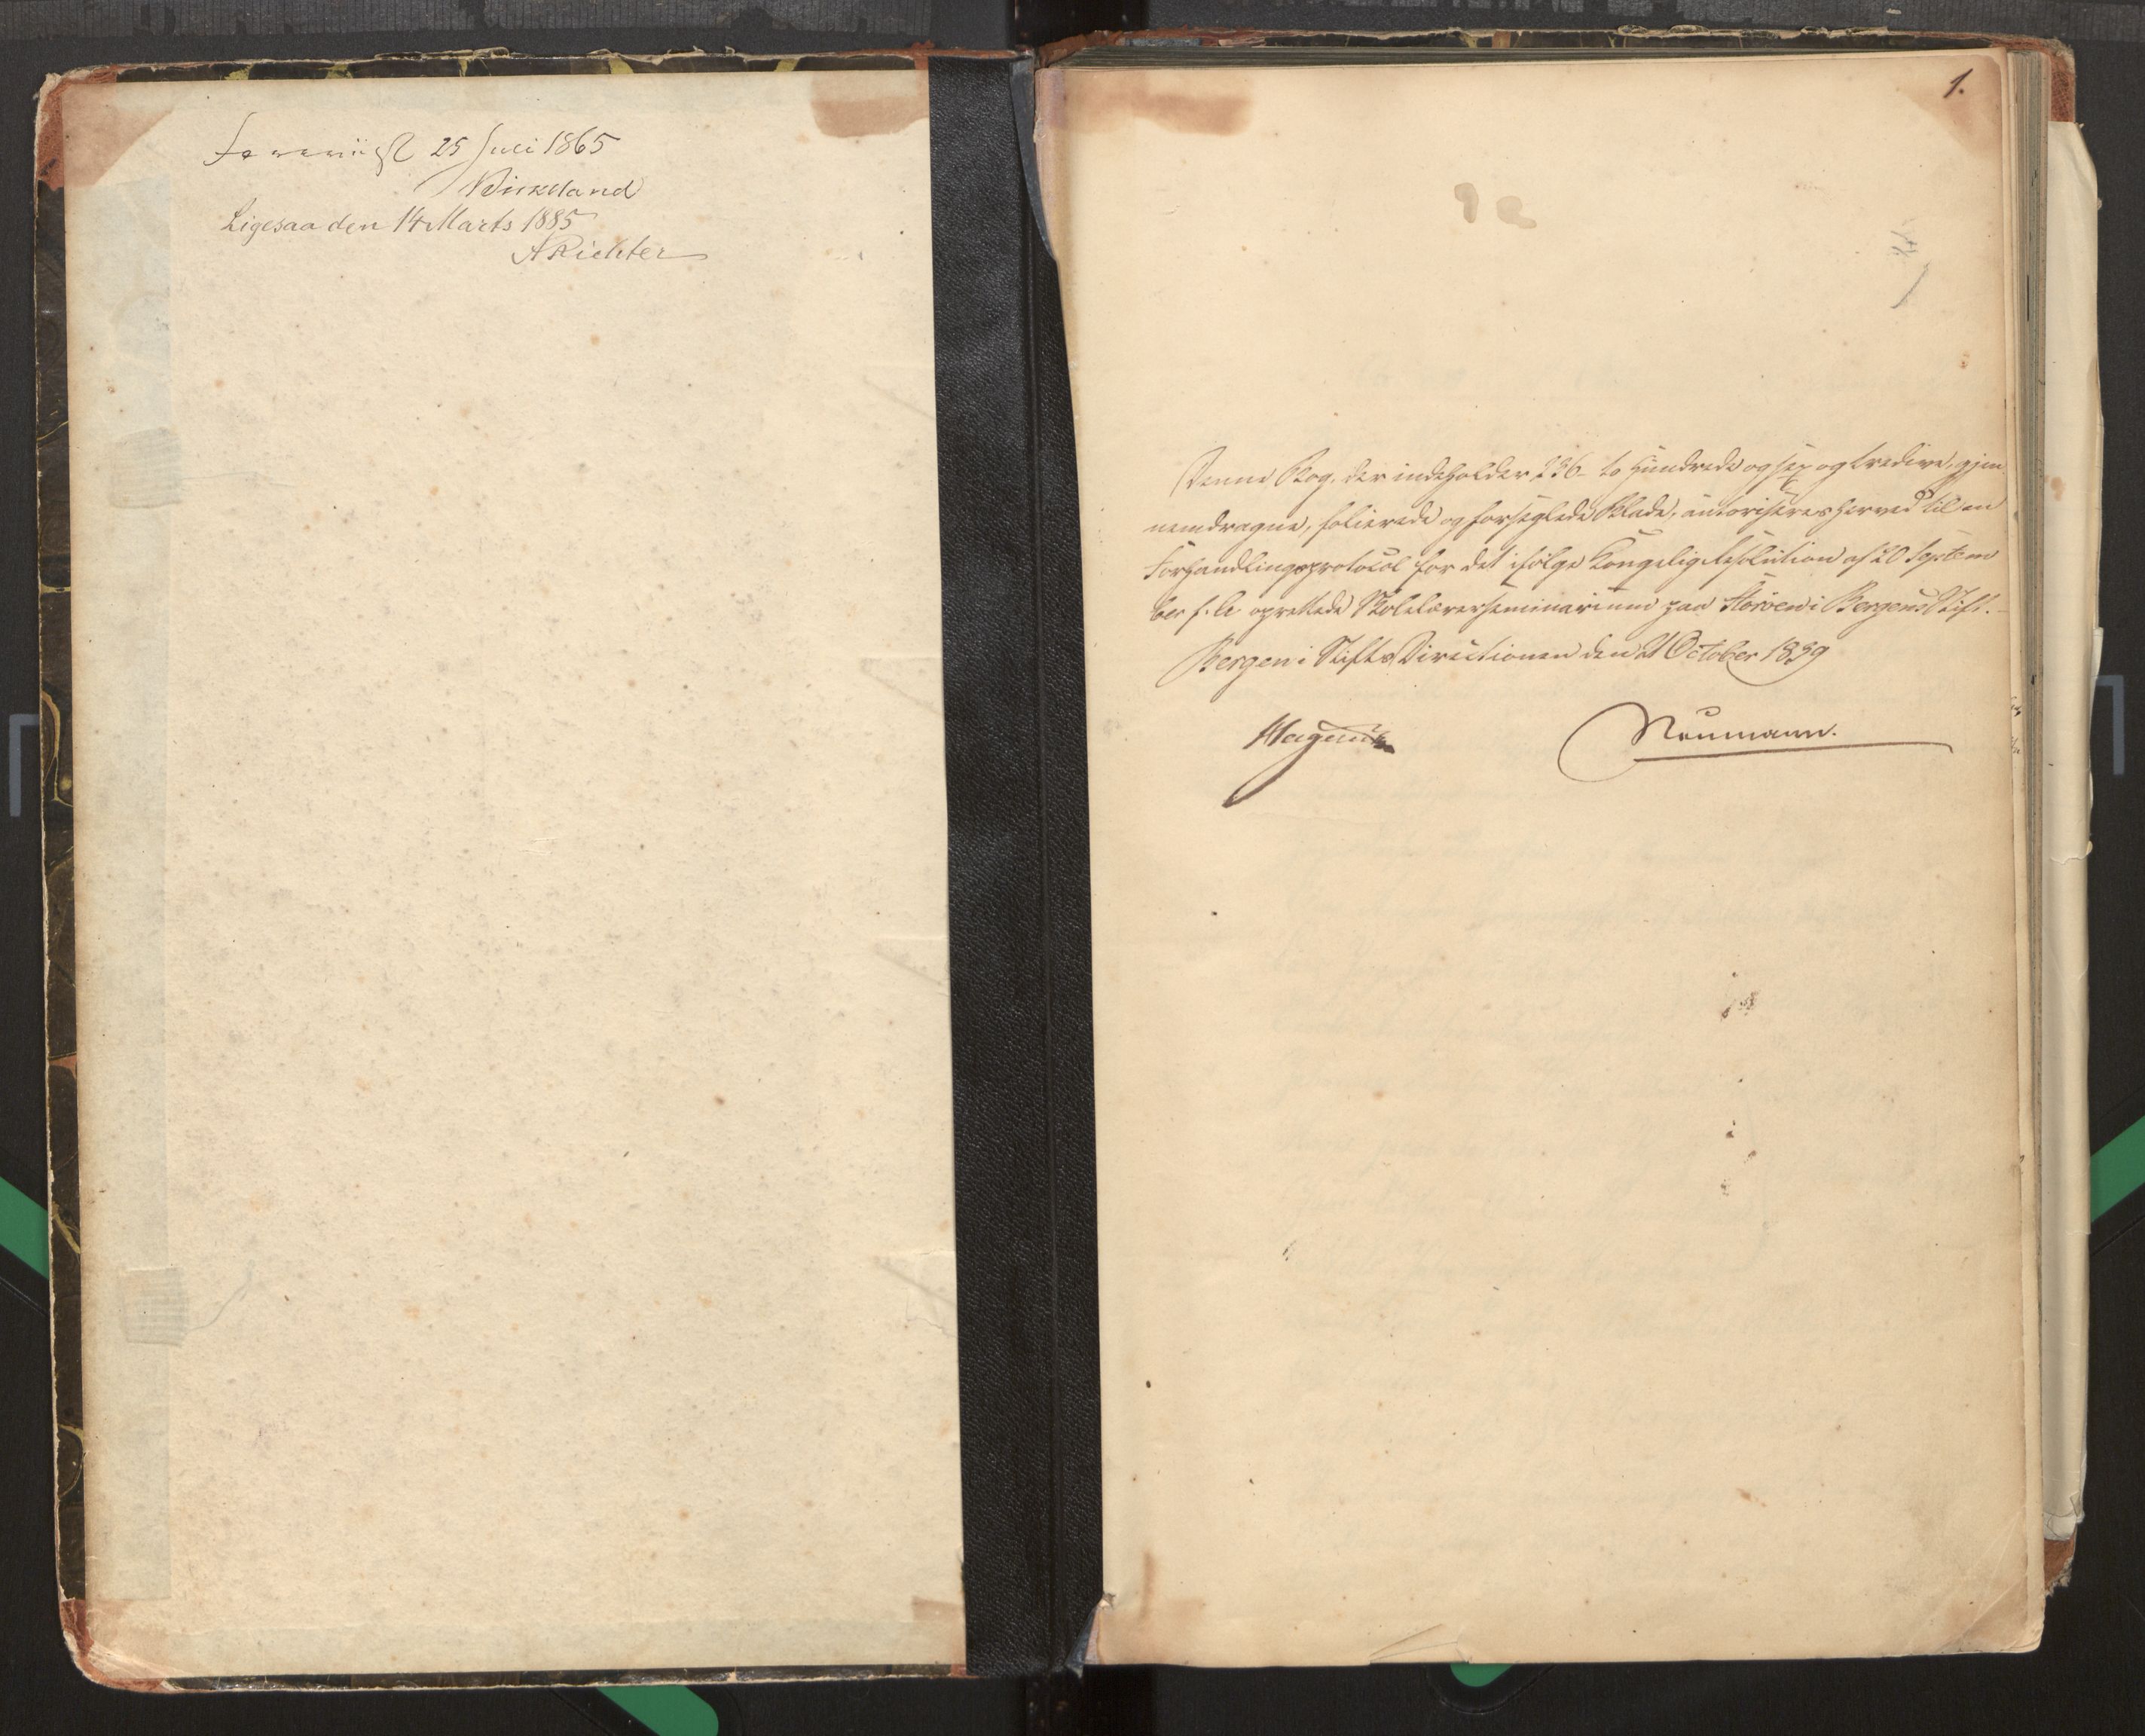 Fremviist 25 Juli 1865
Birkeland
Ligesaa den 14 Marts 1885
A Richter
1.
Denne Bog, der indeholder 236 to Hundrede og sex og tredive, gjen
nemdragne, folierede og forseglede Blade, autoriseres herved til en
Forhandlingsprotocol for det ifølge Kongelig Resolution af 20 Septem
ber f. A. oprettede Skolelærerseminarium paa Storøen i Bergens Stift.
Bergen i Stifts Directionen den 21 October 1839
Hagerup
Neumann.